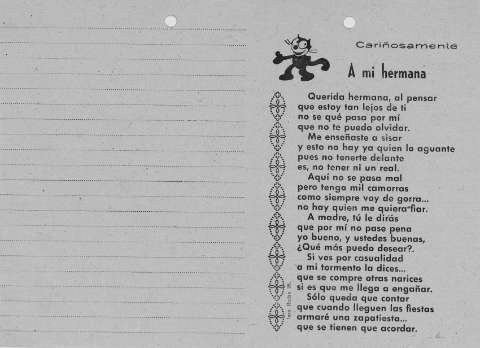 Cariñosamente
A mi hermana
Querida hermana, al pensar
que estoy tan lejos de ti
no se qué pasa por mí
que no te puedo olvidar.
Me enseñaste a sisar
y esto no hay ya quien lo aguante
pues no tenerte delante
es, no tener ni un real.
Aquí no se pasa mal
pero tengo mil camorras
como siempre voy de gorra...
no hay quien me quiera fiar.
A madre, tú le dirás
que por mí no pase pena
yo bueno, y ustedes buenas,
¿Qué más puedo desear?.
Si ves por casualidad
a mi tormento la dices...
que se compre otras narices
si es que me llega a engañar.
Sólo queda que contar
que cuando lleguen las fiestas
armaré una zapatiesta...
que se tienen que acordar.